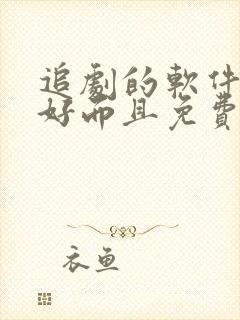 追劇的軟件
好而且免費
衣鱼